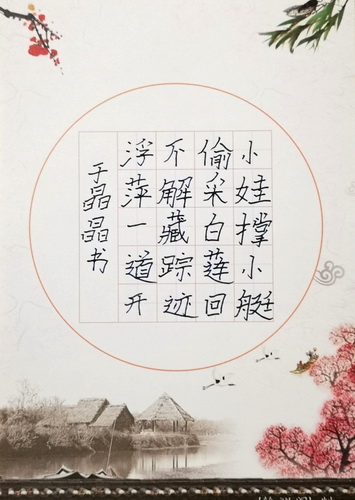 小娃撑小艇
偷采白莲回
不解藏踪迹
浮萍一道开
于晶晶书